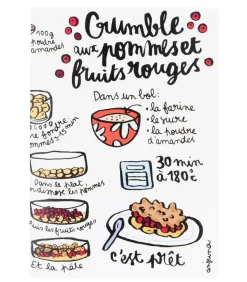 Crumble
aux pommes et
fruits rouges
100g
poudre
amandes
Dans un bol:
• la farine
• le sucre
• la poudre
d'amandes
fondre
pommes ≈ 15 min
Dans le plat,
on dispose les pommes
puis les fruits rouges
Et la pâte
30 min
à 180°
c'est prêt